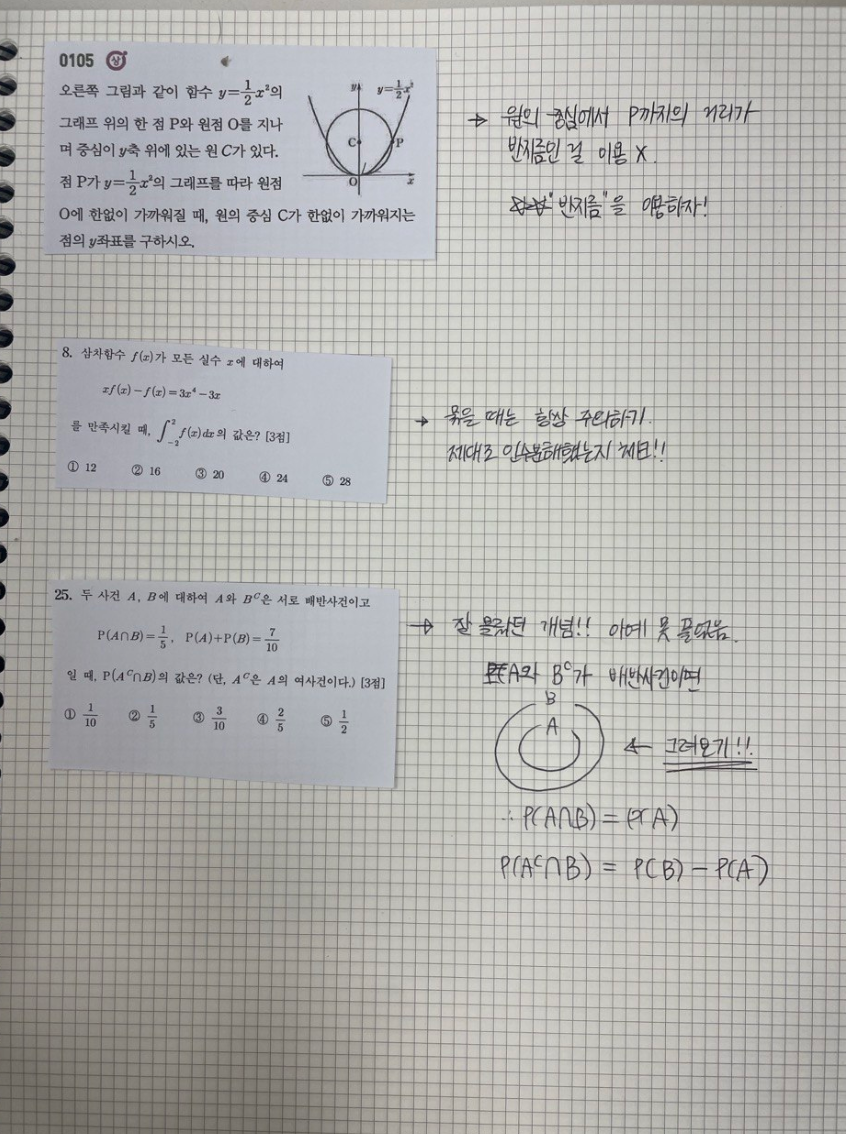 0105 상
오른쪽 그림과 같이 함수 y=\frac{1}{2}x²의
그래프 위의 한 점 P와 원점 O를 지나
며 중심이 y축 위에 있는 원 C가 있다.
점 P가 y=\frac{1}{2}x²의 그래프를 따라 원점
O에 한없이 가까워질 때, 원의 중심 C가 한없이 가까워지는
점의 y좌표를 구하시오.
y y=\frac{1}{2}x²
C P
O x
→ 원의 중심에서 P까지의 거리가
반지름인 걸 이용 X.
"반지름"을 이용하자!
8. 삼차함수 f(x)가 모든 실수 x에 대하여
xf(x)-f(x)=3x⁴-3x
를 만족시킬 때, ∫_{-2}^{2} f(x)dx의 값은? [3점]
① 12 ② 16 ③ 20 ④ 24 ⑤ 28
→ 묶을 때는 항상 주의하기.
제대로 인수분해했는지 체크!!
25. 두 사건 A, B에 대하여 A와 B^C은 서로 배반사건이고
P(A∩B)=\frac{1}{5}, P(A)+P(B)=\frac{7}{10}
일 때, P(A^C∩B)의 값은? (단, A^C은 A의 여사건이다.) [3점]
① \frac{1}{10} ② \frac{1}{5} ③ \frac{3}{10} ④ \frac{2}{5} ⑤ \frac{1}{2}
→ 잘 몰랐던 개념!! 아예 못 풀었음.
A와 B^C가 배반사건이면
B
A
← 그려보기!!
∴ P(A∩B) = P(A)
P(A^C∩B) = P(B) - P(A)